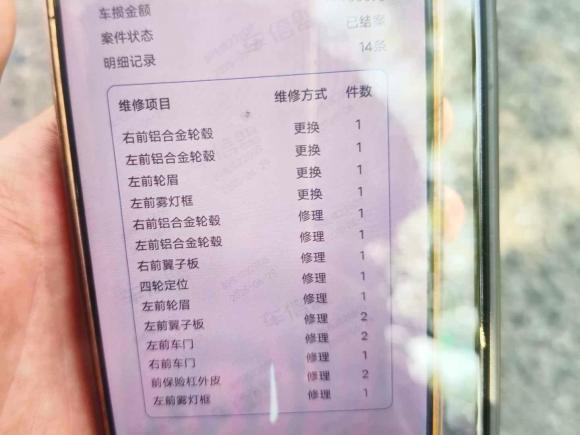 车损金额
案件状态 已结案
明细记录 14条
维修项目 维修方式 件数
右前铝合金轮毂 更换 1
左前铝合金轮毂 更换 1
左前轮眉 更换 1
左前雾灯框 更换 1
右前铝合金轮毂 修理 1
左前铝合金轮毂 修理 1
右前翼子板 修理 1
四轮定位 修理 1
左前轮眉 修理 1
左前翼子板 修理 2
左前车门 修理 2
右前车门 修理 1
前保险杠外皮 修理 2
左前雾灯框 修理 1